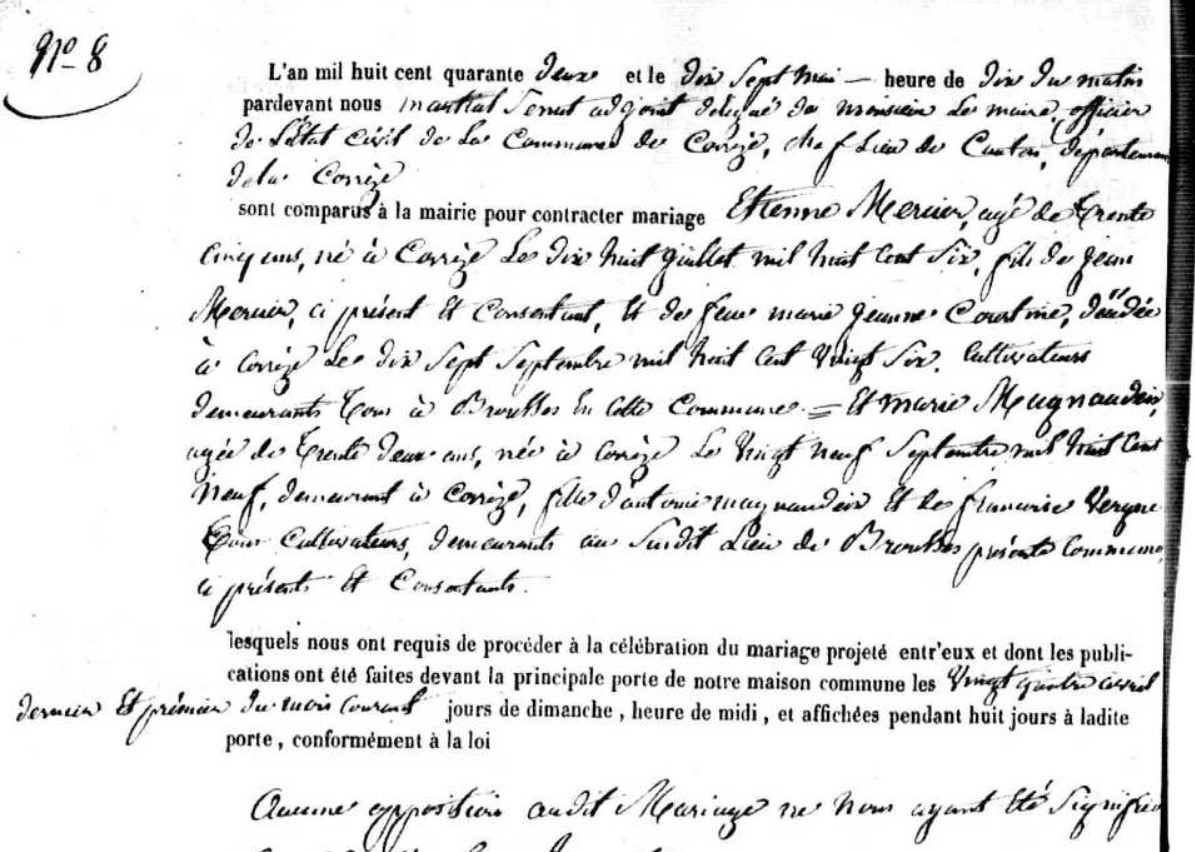 N° 8
L'an mil huit cent quarante deux et le dix sept mai — heure de dix du matin
pardevant nous martial adjoint délégué de monsieur Le maire, officier
de L'état civil de La Commune de Corrèze, chef Lieu de Canton, département
de la Corrèze
sont comparus à la mairie pour contracter mariage Etienne Mercier, agé de Trente
cinq ans, né à Corrèze Le dix huit juillet mil huit Cent Six, fils de jean
Mercier, ci présent Et Consentant, Et de feue marie jeanne décédée
à Corrèze Le dix Sept Septembre mil huit Cent Vingt Six. Cultivateurs
demeurants Tous à Brousses En Cette Commune = Et marie Magnaudeix,
agée de Trente deux ans, née à Corrèze Le Vingt neuf Septembre mil huit Cent
neuf, demeurant à Corrèze, fille d'antoine magnaudeix Et de françoise Vergne
Tous Cultivateurs, demeurants au Susdit Lieu de Brousses présente Commune,
ci présents Et Consentants.
lesquels nous ont requis de procéder à la célébration du mariage projeté entr'eux et dont les publi-
cations ont été faites devant la principale porte de notre maison commune les Vingt quatre avril
dernier Et prémier du mois Courant jours de dimanche, heure de midi, et affichées pendant huit jours à ladite
porte, conformément à la loi
Aucune opposition audit Mariage ne Nous ayant Eté Signifiée